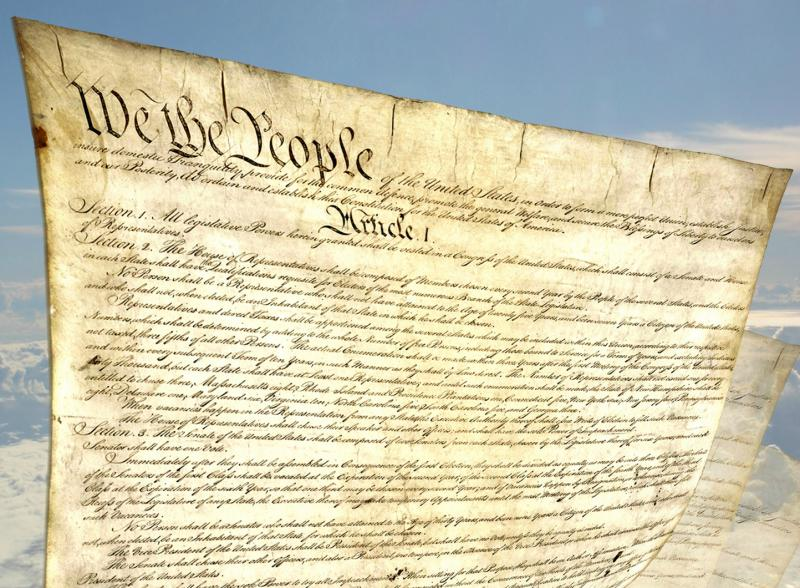 We the People of the United States, in order to form a more perfect Union, establish Justice,
insure domestic Tranquility, provide for the common defence, promote the general Welfare, and secure the Blessings of Liberty to ourselves
and our Posterity, do ordain and establish this Constitution for the United States of America.
Article. I.
Section. 1. All legislative Powers herein granted shall be vested in a Congress of the United States, which shall consist of a Senate and House
of Representatives.
Section. 2. The House of Representatives shall be composed of Members chosen every second Year by the People of the several States, and the Electors
in each State shall have the Qualifications requisite for Electors of the most numerous Branch of the State Legislature.
No Person shall be a Representative who shall not have attained to the Age of twenty five Years, and been seven Years a Citizen of the United States,
and who shall not, when elected, be an Inhabitant of that State in which he shall be chosen.
Representatives and direct Taxes shall be apportioned among the several States which may be included within this Union, according to their respective
Numbers, which shall be determined by adding to the whole Number of free Persons, including those bound to Service for a Term of Years, and excluding Indians
not taxed, three fifths of all other Persons. The actual Enumeration shall be made within three Years after the first Meeting of the Congress of the United States,
and within every subsequent Term of ten Years, in such Manner as they shall by Law direct. The Number of Representatives shall not exceed one for every
thirty Thousand, but each State shall have at Least one Representative; and until such enumeration shall be made, the State of New Hampshire shall be
entitled to chuse three, Massachusetts eight, Rhode Island and Providence Plantations one, Connecticut five, New York six, New Jersey four, Pennsylvania
eight, Delaware one, Maryland six, Virginia ten, North Carolina five, South Carolina five, and Georgia three.
When vacancies happen in the Representation from any State, the Executive Authority thereof shall issue Writs of Election to fill such Vacancies.
The House of Representatives shall chuse their Speaker and other Officers; and shall have the sole Power of Impeachment.
Section. 3. The Senate of the United States shall be composed of two Senators from each State, chosen by the Legislature thereof, for six Years; and each
Senator shall have one Vote.
Immediately after they shall be assembled in Consequence of the first Election, they shall be divided as equally as may be into three Classes. The Seats
of the Senators of the first Class shall be vacated at the Expiration of the second Year, of the second Class at the Expiration of the fourth Year, and of the third
Class at the Expiration of the sixth Year, so that one third may be chosen every second Year; and if Vacancies happen by Resignation, or otherwise, during the
Recess of the Legislature of any State, the Executive thereof may make temporary Appointments until the next Meeting of the Legislature, which shall then fill
such Vacancies.
No Person shall be a Senator who shall not have attained to the Age of thirty Years, and been nine Years a Citizen of the United States, and who shall
not, when elected, be an Inhabitant of that State for which he shall be chosen.
The Vice President of the United States shall be President of the Senate, but shall have no Vote, unless they be equally divided.
The Senate shall chuse their other Officers, and also a President pro tempore, in the Absence of the Vice President, or when he shall exercise the Office of
President of the United States.